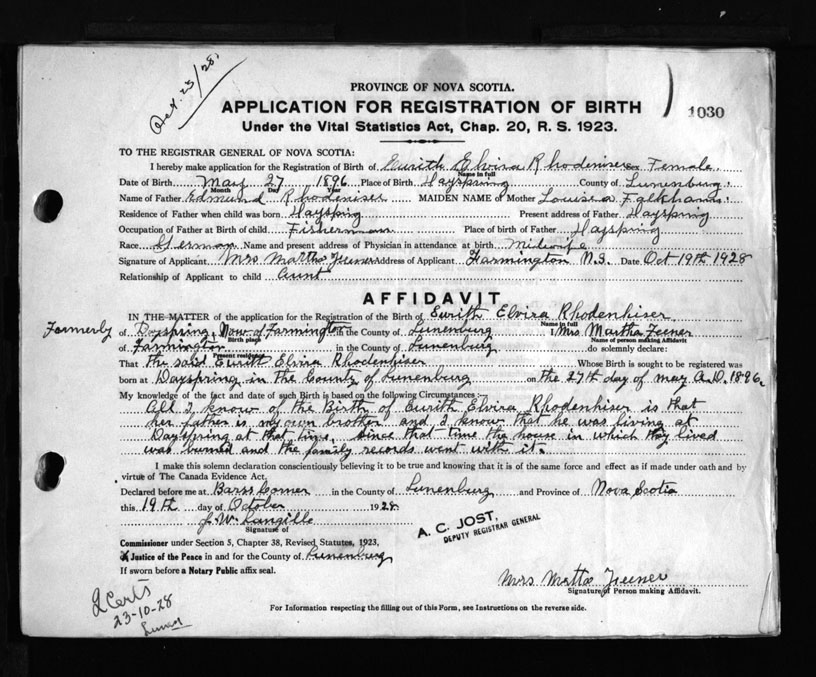 Oct. 23/28.
PROVINCE OF NOVA SCOTIA.
APPLICATION FOR REGISTRATION OF BIRTH
1030
Under the Vital Statistics Act, Chap. 20, R. S. 1923.
TO THE REGISTRAR GENERAL OF NOVA SCOTIA:
I hereby make application for the Registration of Birth of Eurith Elvira Rhodeniser Sex Female
Name in full
Date of Birth May 27 1896 Place of Birth Hayspring County of Lunenburg
Month Day Year
Name of Father Edmund Rhodeniser MAIDEN NAME of Mother Louisea
Residence of Father when child was born Hayspring Present address of Father Hayspring
Occupation of Father at Birth of child Fisherman Place of birth of Father Hayspring
Race German Name and present address of Physician in attendance at birth Midwife
Signature of Applicant Mrs Martha Feener Address of Applicant Farmington N.S. Date Oct 19th 1928
Relationship of Applicant to child Aunt
AFFIDAVIT
IN THE MATTER of the application for the Registration of the Birth of Eurith Elvira Rhodenhiser
Name in full
Formerly of Dayspring Now of Farmington in the County of Lunenburg I, Mrs Martha Feener
Birth place Name of person making Affidavit
of Farmington in the County of Lunenburg do solemnly declare:
Present residence
That the said Eurith Elvira Rhodenhiser Whose Birth is sought to be registered was
born at Dayspring in the County of Lunenburg on the 27th day of may A.D. 1896.
My knowledge of the fact and date of such Birth is based on the following Circumstances:
All I know of the Birth of Eurith Elvira Rhodenhiser is that
her father is my own brother and I know that he was living at
Dayspring at that time. Since that time the house in which they lived
was burned and the family records went with it.
I make this solemn declaration conscientiously believing it to be true and knowing that it is of the same force and effect as if made under oath and by
virtue of The Canada Evidence Act.
Declared before me at Barss Corner in the County of Lunenburg and Province of Nova Scotia
this 19th day of October 1928
J. W. Langille
Signature of
A. C. JOST,
DEPUTY REGISTRAR GENERAL
Commissioner under Section 5, Chapter 38, Revised Statutes, 1923,
Justice of the Peace in and for the County of Lunenburg
If sworn before a Notary Public affix seal.
Mrs Feener
Signature of Person making Affidavit.
2 Certs
23-10-28
For Information respecting the filling out of this Form, see Instructions on the reverse side.